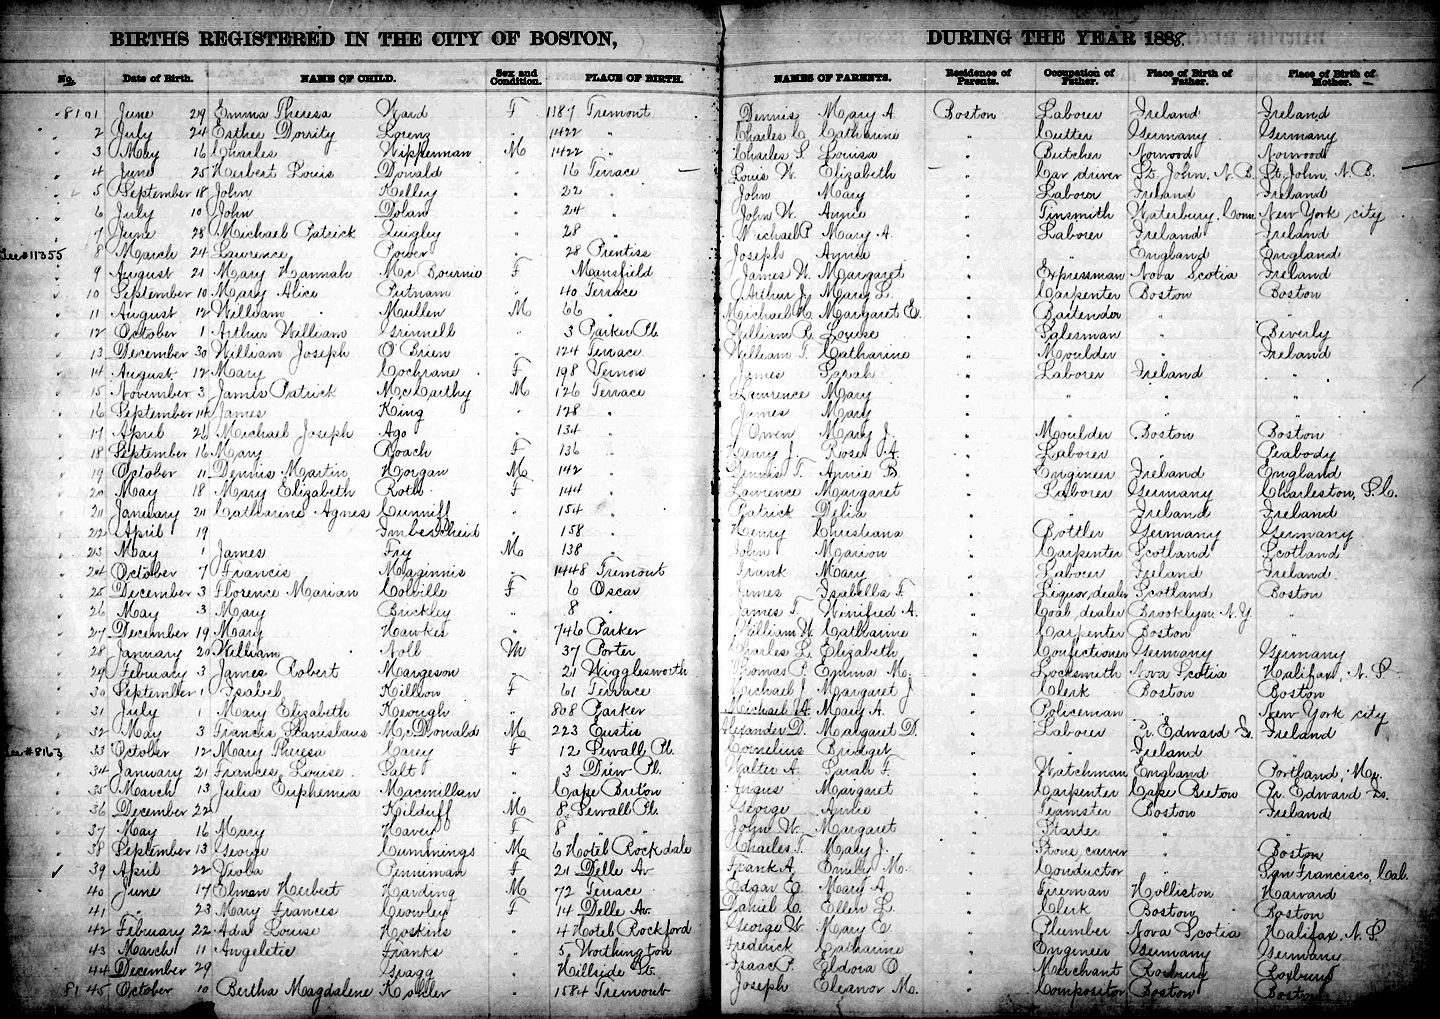 BIRTHS REGISTERED IN THE CITY OF BOSTON, DURING THE YEAR 1888.
No. Date of Birth. NAME OF CHILD. Sex and Condition. PLACE OF BIRTH. NAMES OF PARENTS. Residence of Parents. Occupation of Father. Place of Birth of Father. Place of Birth of Mother.
8101 June 29 Emma Theresa Ward F 1187 Tremont Dennis Mary A. Boston Laborer Ireland Ireland
2 July 24 Esther Dorrity Lorenz " 1422 " Charles C. Catharine " Cutter Germany Germany
3 May 16 Charles Wipperman M 1422 " Charles S. Louisa " Butcher Norwood Norwood
4 June 25 Herbert Louis Donald " 16 Terrace Louis W. Elizabeth " Car driver St. John, N.B. St. John, N.B.
5 September 18 John Kelley " 22 " John Mary " Laborer Ireland Ireland
6 July 10 John Dolan " 24 " John W. Annie " Tinsmith Waterbury, Conn. New York city
7 June 28 Michael Patrick Quigley " 28 " Michael P. Mary A. " Laborer Ireland Ireland
See #11355 8 March 24 Lawrence Power " 28 Prentiss Joseph Annie " " England England
9 August 21 Mary Hannah Mc Bournie F Mansfield James W. Margaret " Expressman Nova Scotia Ireland
10 September 10 Mary Alice Putnam " 40 Terrace Arthur J. Mary L. " Carpenter Boston Boston
11 August 12 William Mullen M 66 " Michael H. Margaret E. " Bartender " "
12 October 1 Arthur William Grinnell " 3 Parker Pl. William R. Louise " Salesman " Beverly
13 December 30 William Joseph O'Brien " 124 Terrace William T. Catharine " Moulder " Ireland
14 August 12 Mary Cochrane F 198 Vernon James Sarah " Laborer Ireland "
15 November 3 James Patrick McCarthy M 126 Terrace Lawrence Mary " " " "
16 September 14 James King " 128 " James Mary " " " "
17 April 26 Michael Joseph Ago " 134 " Owen Mary J. " Moulder Boston Boston
18 September 16 Mary Roach F 136 " Henry J. Rose A. " Laborer " Peabody
19 October 11 Dennis Martin Horgan M 142 " Dennis T. Annie B. " Engineer Ireland England
20 May 18 Mary Elizabeth Roth F 144 " Lawrence Margaret " Laborer Germany Charleston, S.C.
21 January 21 Catharine Agnes Cunniff " 154 " Patrick Delia " " Ireland Ireland
22 April 19 Imbescheid " 158 " Henry Christiana " Bottler Germany Germany
23 May 1 James Fry M 138 " John Marion " Carpenter Scotland Scotland
24 October 7 Francis Maginnis " 1448 Tremont Frank Mary " Laborer Ireland Ireland
25 December 3 Florence Marian Colville F 6 Oscar James Isabella F. " Liquor dealer Scotland Boston
26 May 3 Mary Brickley " 8 " James T. Winifred A. " Coal dealer Brooklyn N.Y. "
27 December 19 Mary Hawkes " 746 Parker William W. Catharine " Carpenter Boston "
28 January 20 William Noll M 37 Porter Charles L. Elizabeth " Confectioner Germany Germany
29 February 3 James Robert Margeson " 21 Wigglesworth Thomas P. Emma M. " Locksmith Nova Scotia Halifax, N.S.
30 September 1 Isabel Killion F 61 Terrace Michael J. Margaret J. " Clerk Boston Boston
31 July 1 Mary Elizabeth Keough " 808 Parker Michael W. Mary A. " Policeman " New York city
32 May 3 Francis Stanislaus McDonald M 223 Eustis Alexander D. Margaret D. " Laborer Pr. Edward Is. Ireland
See #8163 33 October 12 Mary Theresa Carey F 12 Sewall Pl. Cornelius Bridget " " Ireland "
34 January 21 Frances Louise Salt " 3 Drew Pl. Walter A. Sarah F. " Watchman England Portland, Me.
35 March 13 Julia Euphemia Macmillan " Cape Breton Angus Margaret " Carpenter Cape Breton Pr. Edward Is.
36 December 22 Kilduff M 8 Sewall Pl. George Annie " Teamster Boston Ireland
37 May 16 Mary Haven F 8 " " John W. Margaret " Starter " "
38 September 13 George Cummings M 6 Hotel Rockdale Charles T. Mary J. " Stone carver " Boston
39 April 22 Viola Penniman F 21 Delle Av. Frank A. Emily M. " Conductor " San Francisco, Cal.
40 June 17 Elman Herbert Harding M 72 Terrace Edgar E. Mary A. " Fireman Holliston Harvard
41 " 23 Mary Frances Crowley F 14 Delle Av. Daniel C. Ellen L. " Clerk Boston Boston
42 February 22 Ada Louise Hoskins " 4 Hotel Rockford George W. Mary E. " Plumber Nova Scotia Halifax, N.S.
43 March 11 Angeletie Franks " 5 Worthington Frederick Catharine " Engineer Germany Germany
44 December 29 Gragg " Hillside St. Isaac P. Eldora O. " Merchant Roxbury Roxbury
8145 October 10 Bertha Magdalene Kohler " 1584 Tremont Joseph Eleanor M. " Compositor Boston Boston